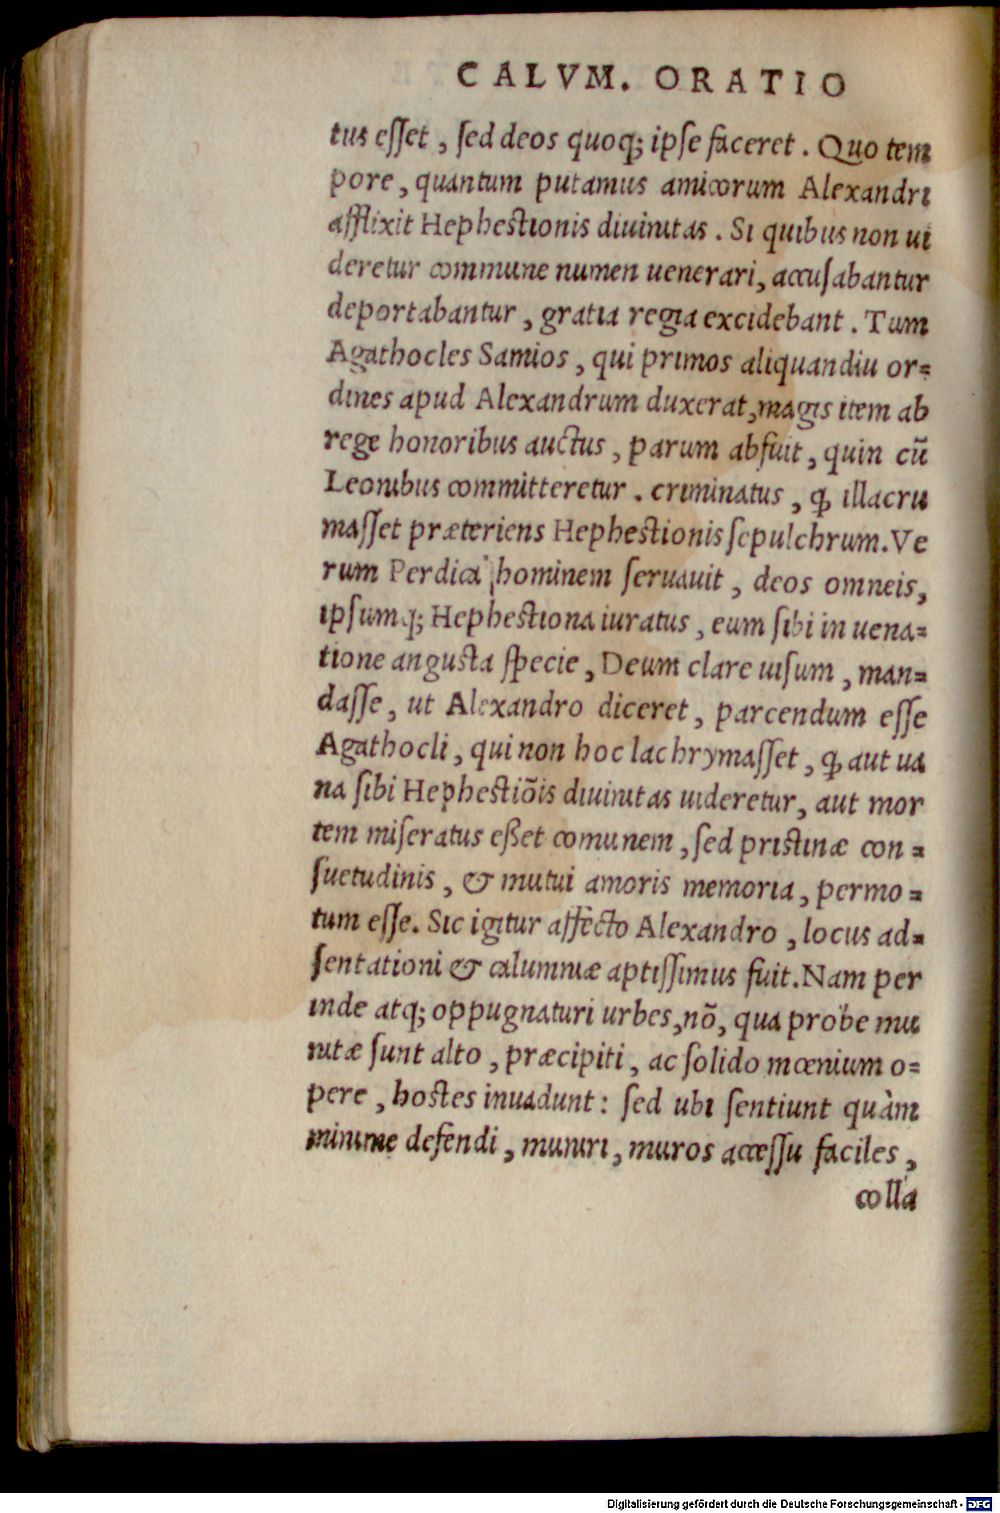 CALVM. ORATIO
tus eſſet, ſed deos quoq; ipſe faceret. Quo tem
pore, quantum putamus amicorum Alexandri
afflixit Hephestionis diuinitas. Si quibus non ui
deretur commune numen uenerari, accuſabantur
deportabantur, gratia regia excidebant. Tum
Agathocles Samios, qui primos aliquandiu or=
dines apud Alexandrum duxerat, magis item ab
rege honoribus auctus, parum abfuit, quin cū
Leonibus committeretur. criminatus, ꝙ illacru
maſſet præteriens Hephestionis ſepulchrum. Ve
rum Perdica hominem ſeruauit, deos omneis,
ipſumq; Hephestiona iuratus, eum ſibi in uena=
tione angusta ſpecie, Deum clare uiſum, man=
daſſe, ut Alexandro diceret, parcendum eſſe
Agathocli, qui non hoc lachrymaſſet, ꝙ aut ua
na ſibi Hephestiōis diuinitas uideretur, aut mor
tem miſeratus eßet comunem, ſed pristinæ con=
ſuetudinis, & mutui amoris memoria, permo=
tum eſſe. Sic igitur affecto Alexandro, locus ad=
ſentationi & calumniæ aptiſſimus fuit. Nam per
inde atq; oppugnaturi urbes, nō, qua probe mu
nitæ ſunt alto, præcipiti, ac ſolido mœnium o=
pere, hostes inuadunt: ſed ubi ſentiunt quàm
minime defendi, muniri, muros acceſſu faciles,
colla
Digitalisierung gefördert durch die Deutsche Forschungsgemeinschaft - DFG